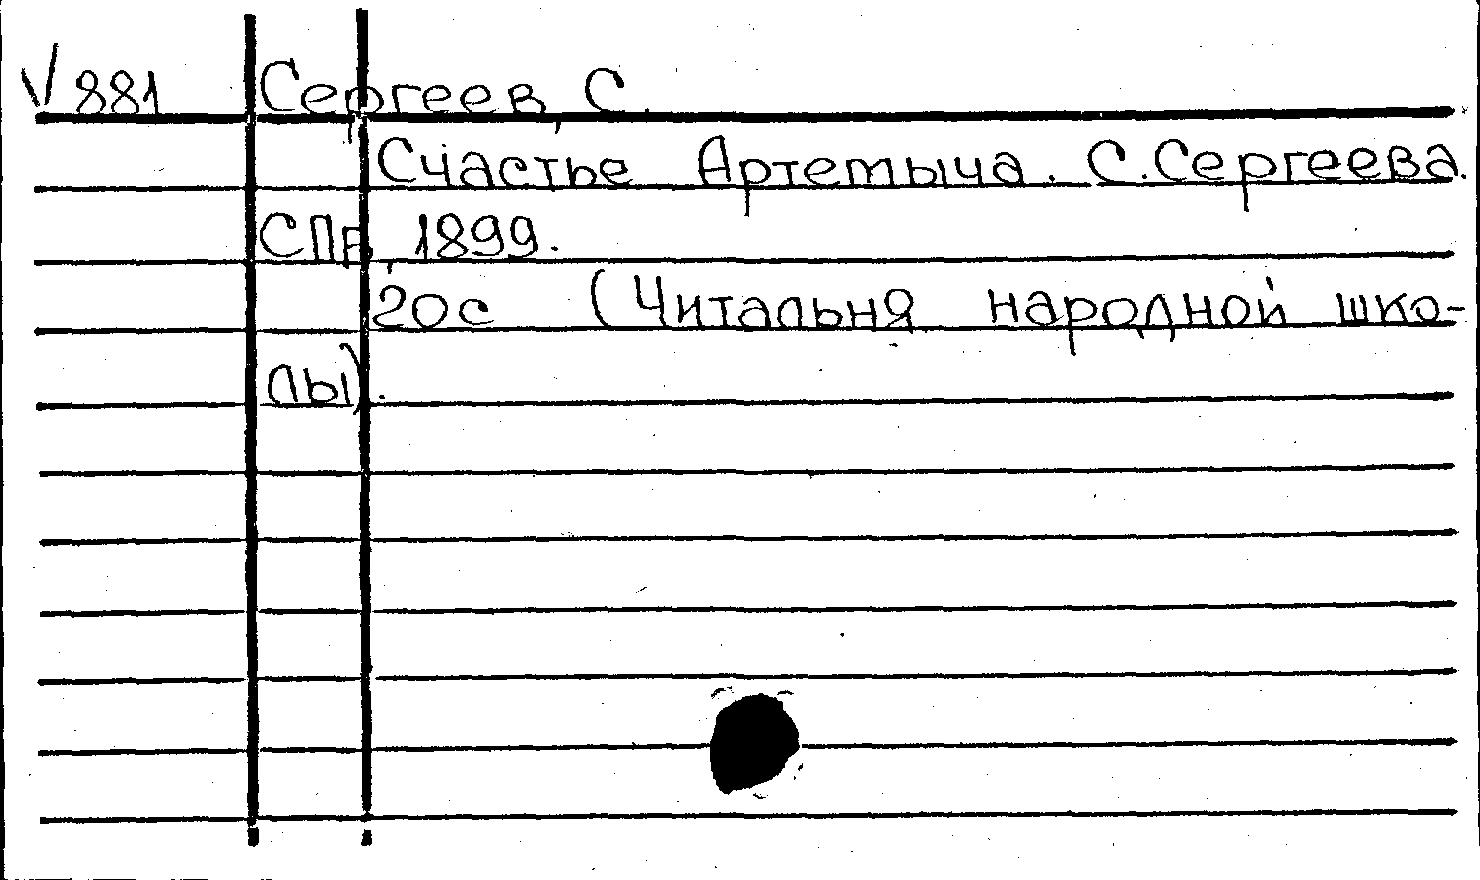 V 881 Сергеев, С.
Счастье Артемыча. С. Сергеева.
СПв, 1899.
20с (Читальня народной шко-
лы).